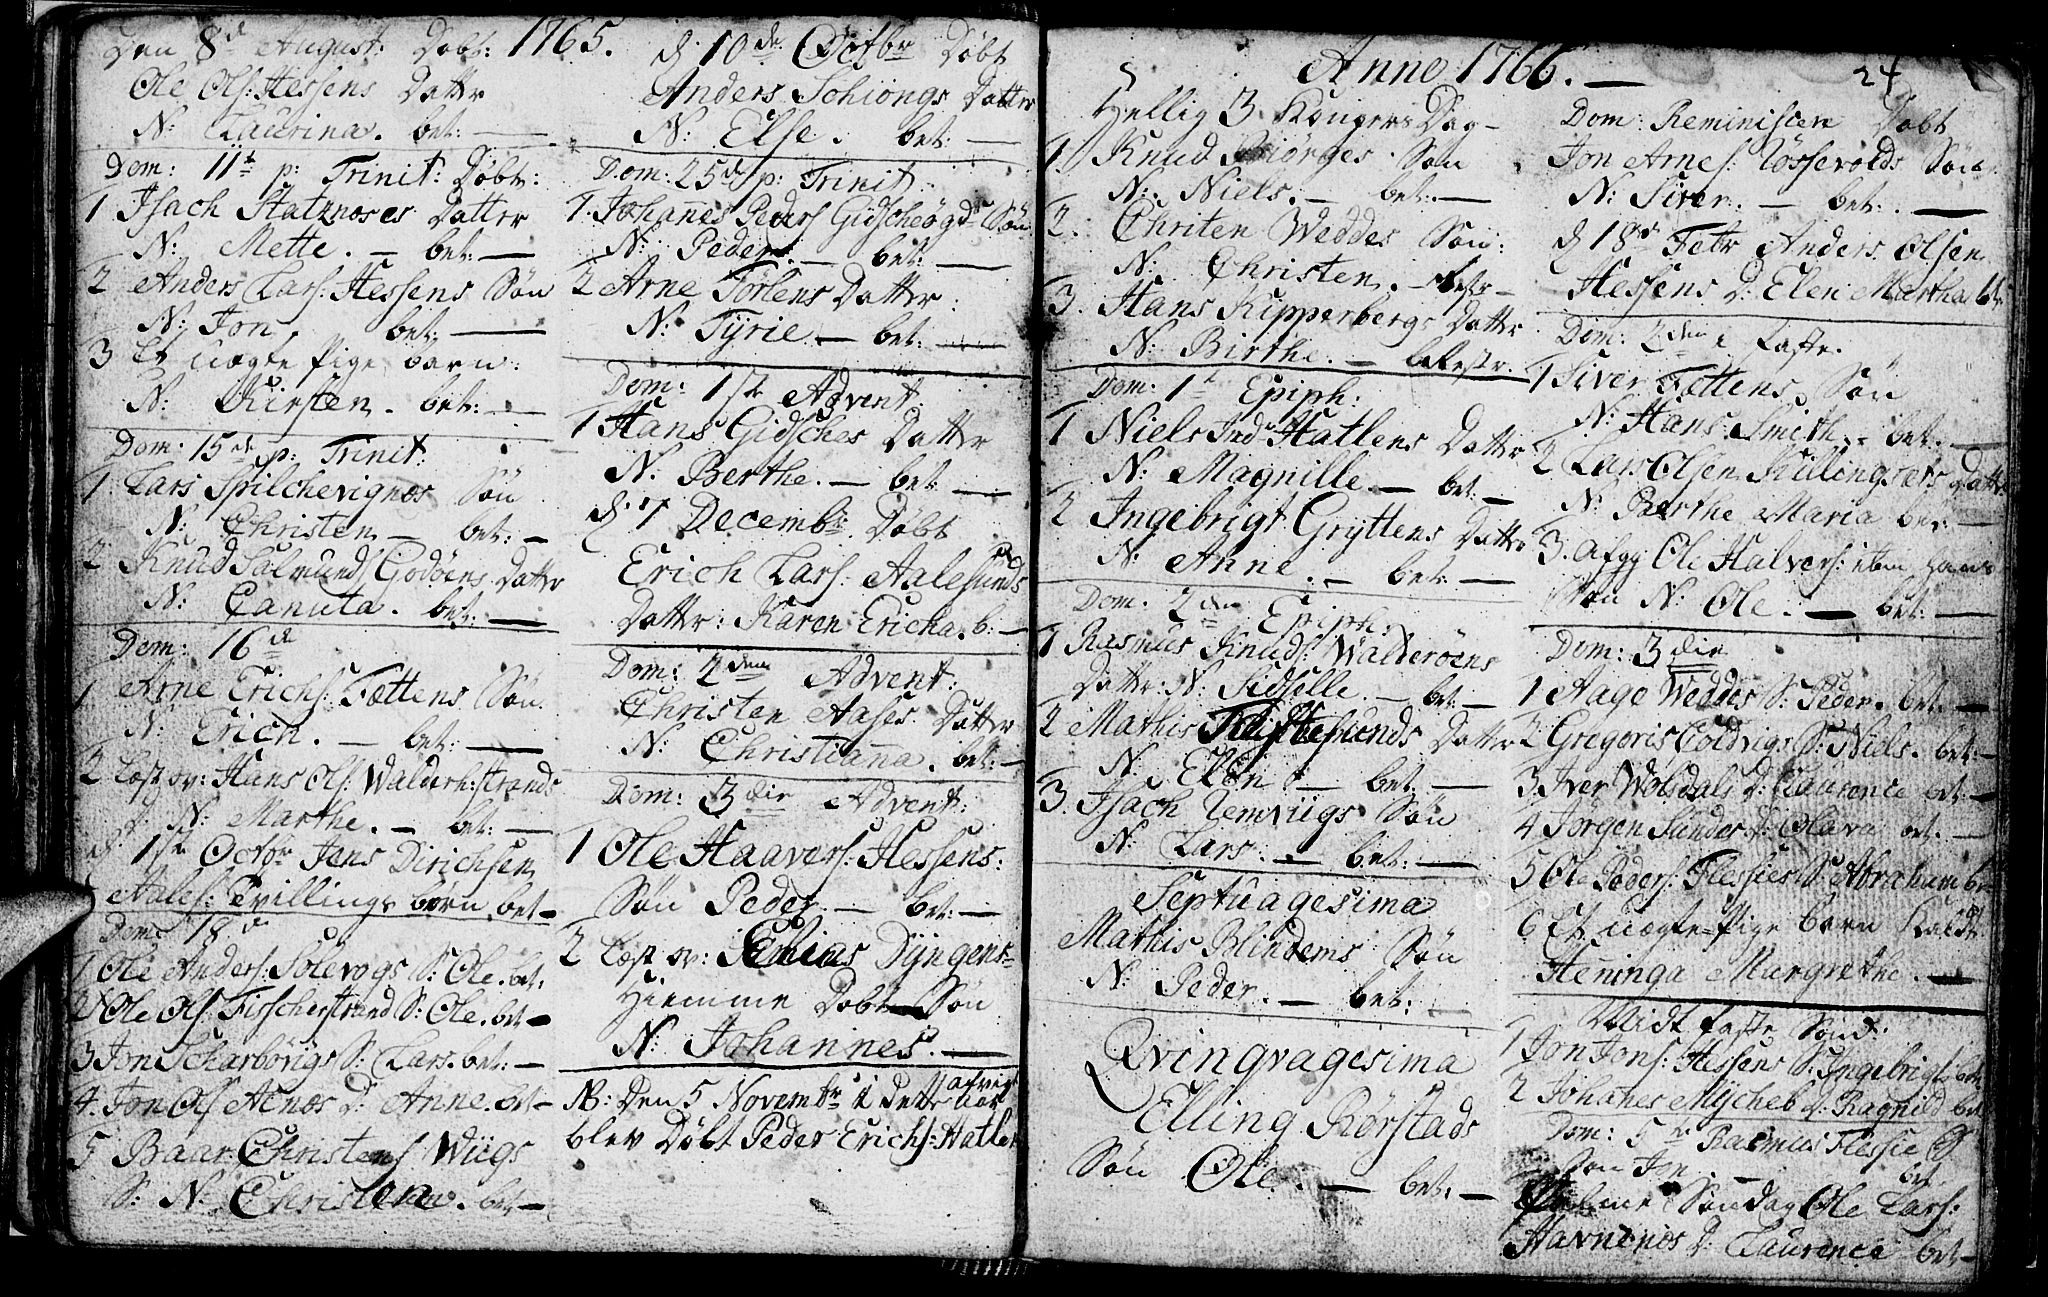 Den 8de August: Døbt: 1765.
Ole Ols: Hessens Datter
N: Laurina. bet: —
Dom: 11te p: Trinit: Døbt:
1 Isach Statznæses Datter
N: Mette. — bet: —
2 Anders Lars: Hessens Søn
N: Jon. bet: —
3 Et uægte Pige barn:
N: Kirsten. bet: —
Dom: 15de p: Trinit:
1 Lars Spilchevignæs Søn
N: Christen — bet: —
2 Knud Salmunds Godøens Datter
N: Canuta. bet: —
Dom: 16de
1 Arne Erichs: Fættens Søn
N: Erich. — bet: —
2 Hans Ols: Walderh:strands
N: Marthe. — bet: —
d 1ste Octobr Jens Dirichsen
Aales: Tvillings børn bet —
Dom: 18de
1 Ole Anders: Solevogs S: Ole. bet:
2 Ole Ols: Fischerstrand S: Ole. bet —
3 Jon Scharbövigs S: Lars. bet: —
4. Jon Ols Aenæs D: Anne. bet —
5 Baar Christens Wiigs
S: N: Christen. bet —
d. 10de Octbr Døbt
Anders Schiongs Datter
N: Else. bet: —
Dom: 25de p: Trinit.
1. Johannes Peders Gidscheögd: Søn
N: Peder. — bet: —
2 Arne Törlens Datter
N: Tyrie — bet: —
Dom: 1ste Advent.
1 Hans Gidsches Datter
N: Berthe. — bet: —
d. 7 Decembr: Døbt
Erich Lars: Aalesunds
Datter: Karen Ericha. b: —
Dom: 2den Advent:
Christen Aases Datter
N: Christianna. bet: —
Dom: 3die Advent:
1 Ole Haavers: Hessens:
Søn Peder. — bet: —
2 Elias Dyngens
Hiemme Døbt Søn
N: Johannes. —
NB: Den 5 Novembr i dette aar
blev Døbt Peder Erichs: Hatlen
Anno 1766. —
24
Hellig 3 Kongers Dag —
1. Knud Biörges Søn
N: Niels. — bet: —
2. Christen Weddes Søn:
N: Christen. —
3. Hans Kipperbergs Datter
N: Birthe. —
Dom: 1te Epiph:
1 Niels Hatlens Datter
N: Magnille. — bet: —
2 Ingebrigt Gryttens Datter
N: Anne. — bet: —
Dom. 2den Epiph:
1 Rasmus Knuds: Walderöens
Datter: N: Sidselle. — bet: —
2 Mathis Datter
N: Elen — bet: —
3. Isach Nemviigs Søn
N: Lars. — bet: —
Septuagesima
Mathis Blindems Søn
N: Peder. — bet: —
Qvinqvagesima
Elling Rörstads
Søn Ole. — bet: —
Dom: Reminiscere Døbt
Jon Arnes: Løssevolds Søn
N: Siver. — bet: . —
d 18de Febr Anders Olsen
Hessens D: Elen Martha bt
Dom: 2den i Faste.
1 Siver Fættens Søn
N: Hans Smith. — bet. —
2 Lars Olsen Killingsets Datter
N: Berthe Maria bet: —
3. Afgg Ole Halvers: hans
Søn N: Ole. — bet: —
Dom: 3die
1 Aage Weddes S: Peder. bet. —
2 Gregoris Coldvigs S: Niels. bet: —
3 Iver Wolsdals D: Laurence bet —
4 Jørgen Sundes D: Olava bet. —
5 Ole Peders: Flessies S: Abraham be
6 Et uægte Pige barn Kaldt
Henninga Margrethe. —
Midt faste Sønd:
1 Jon Jons: Hessens S: Ingebrigt. bet
2 Johannes Myscheb D: Ragnild bet
Dom: 5te Rasmus Flessie
Søn Jon — bet.
Palme Søndag Ole Lars:
Havnenæs D: Laurence bet —